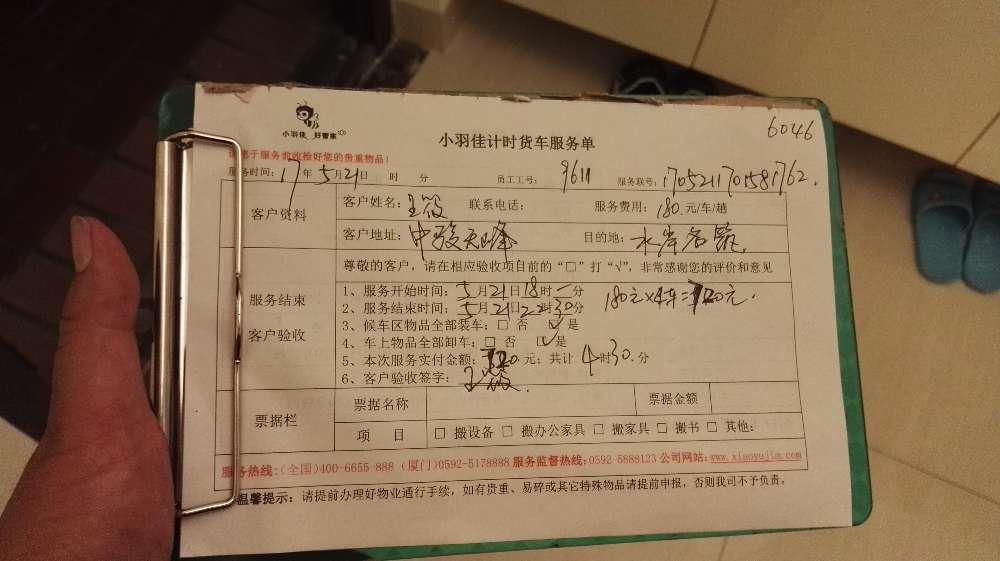 6046
小羽佳 好管家
小羽佳计时货车服务单
请您于服务前收捡好您的贵重物品！
服务时间：17年5月21日 时 分 员工工号： 9611 服务联号：
客户资料
客户姓名：王筱 联系电话： 服务费用：180.元/车/趟
客户地址：中骏天峰 目的地：水岸名筑
服务结束
客户验收
尊敬的客户，请在相应验收项目前的“□”打“√”，非常感谢您的评价和意见
1、服务开始时间：5月21日18时 分
2、服务结束时间：5月21日22时30分
180元×4车=720元.
3、候车区物品全部装车：□ 否 ☑ 是
4、车上物品全部卸车：□ 否 ☑ 是
5、本次服务实付金额：720.元；共计 4时30.分
6、客户验收签字：王筱
票据栏
票据名称 票据金额
项 目 □ 搬设备 □ 搬办公家具 □ 搬家具 □ 搬书 □ 其他：
服务热线：(全国)400-6655-888 (厦门)0592-5178888 服务监督热线：0592-5888123 公司网站：www.xiaoyujia.com
温馨提示：请提前办理好物业通行手续，如有贵重、易碎或其它特殊物品请提前申报，否则我司不予负责。